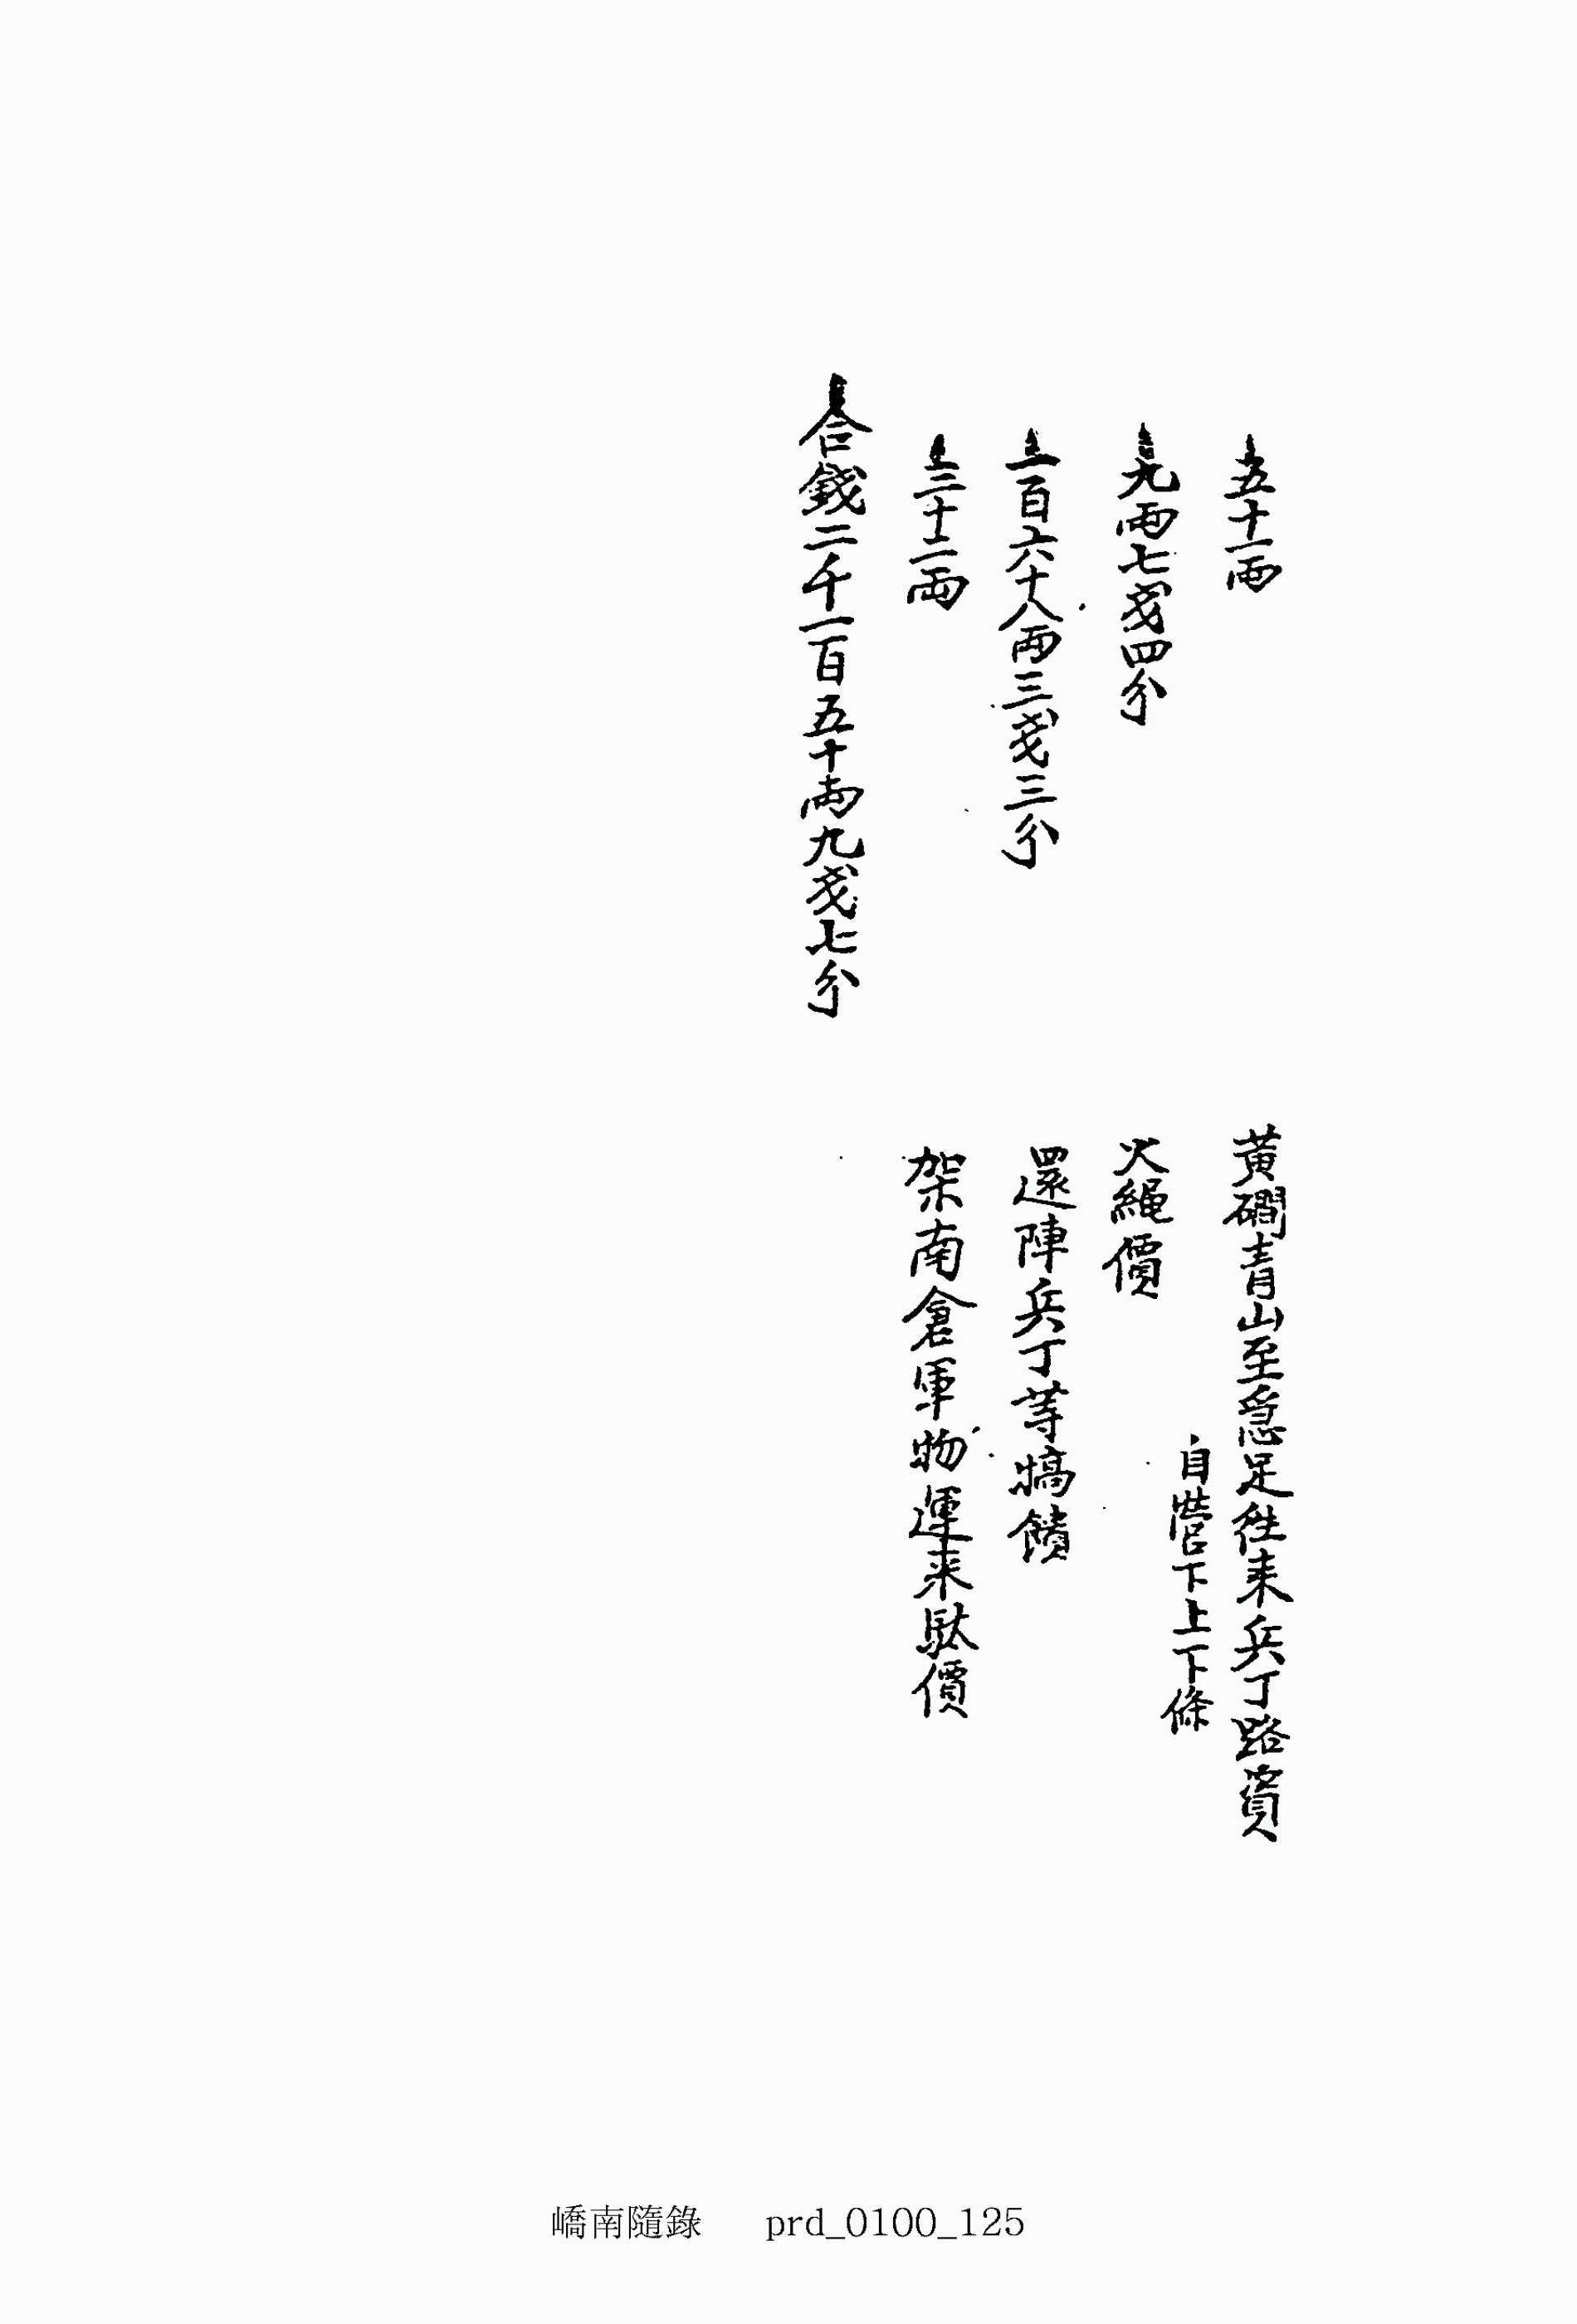 五十一両 黃磵靑山至急足往来兵丁路資
自營下上下條
九兩七戔四分 火繩價
一百六十八兩三戔三分 還陣兵丁等犒饋
三十二兩 架南倉軍物運来駄價
合錢二千一百五十兩九戔七分
嶠南隨錄 prd_0100_125